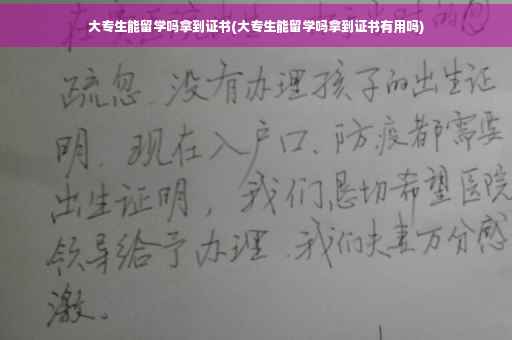 大专生能留学吗拿到证书(大专生能留学吗拿到证书有用吗)
疏忽、没有办理孩子的出生证
明、现在入户口、防疫都需要
出生证明，我们恳切希望医院
领导给予办理、我们夫妻万分感
激。